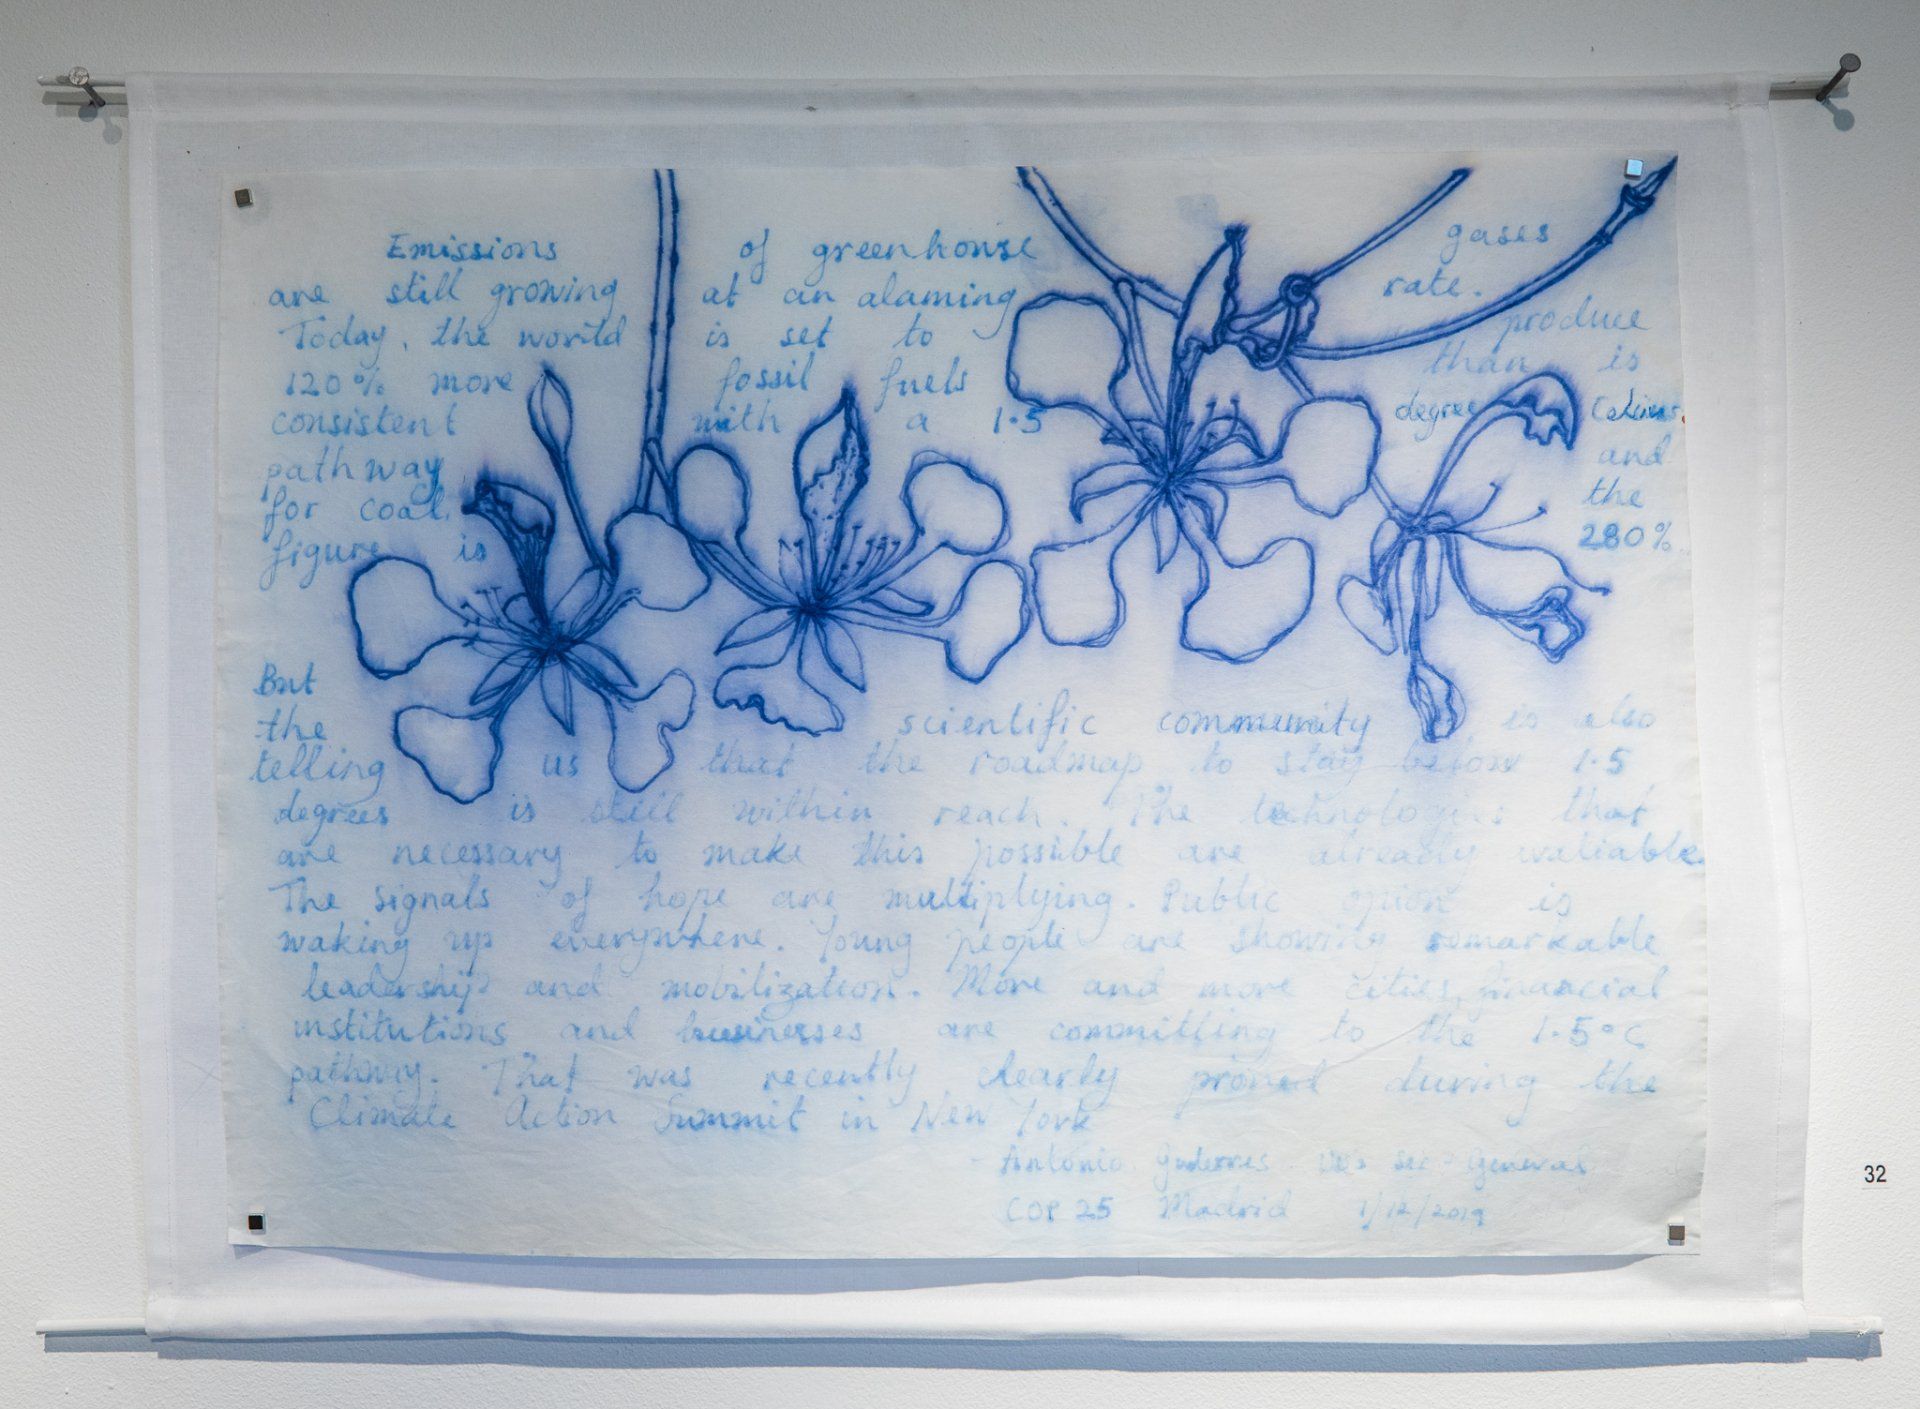 Emissions of greenhouse gases
are still growing at an alaming rate.
Today, the world is set to produce
120% more fossil fuels than is
consistent with a 1.5 degree Celsius
pathway and
for coal the
figure is 280%
But
the scientific community is also
telling us that the roadmap to stay below 1.5
degrees is still within reach. The technologies that
are necessary to make this possible are already avaliable.
The signals of hope are multiplying. Public opnion is
waking up everywhere. Young people are showing remarkable
leadership and mobilization. More and more cities, financial
institutions and businesses are committing to the 1.5°C
pathway. That was recently clearly proved during the
Climate Action Summit in New York
- António Guterres Sec-General
COP 25 Madrid 1/12/2019
32